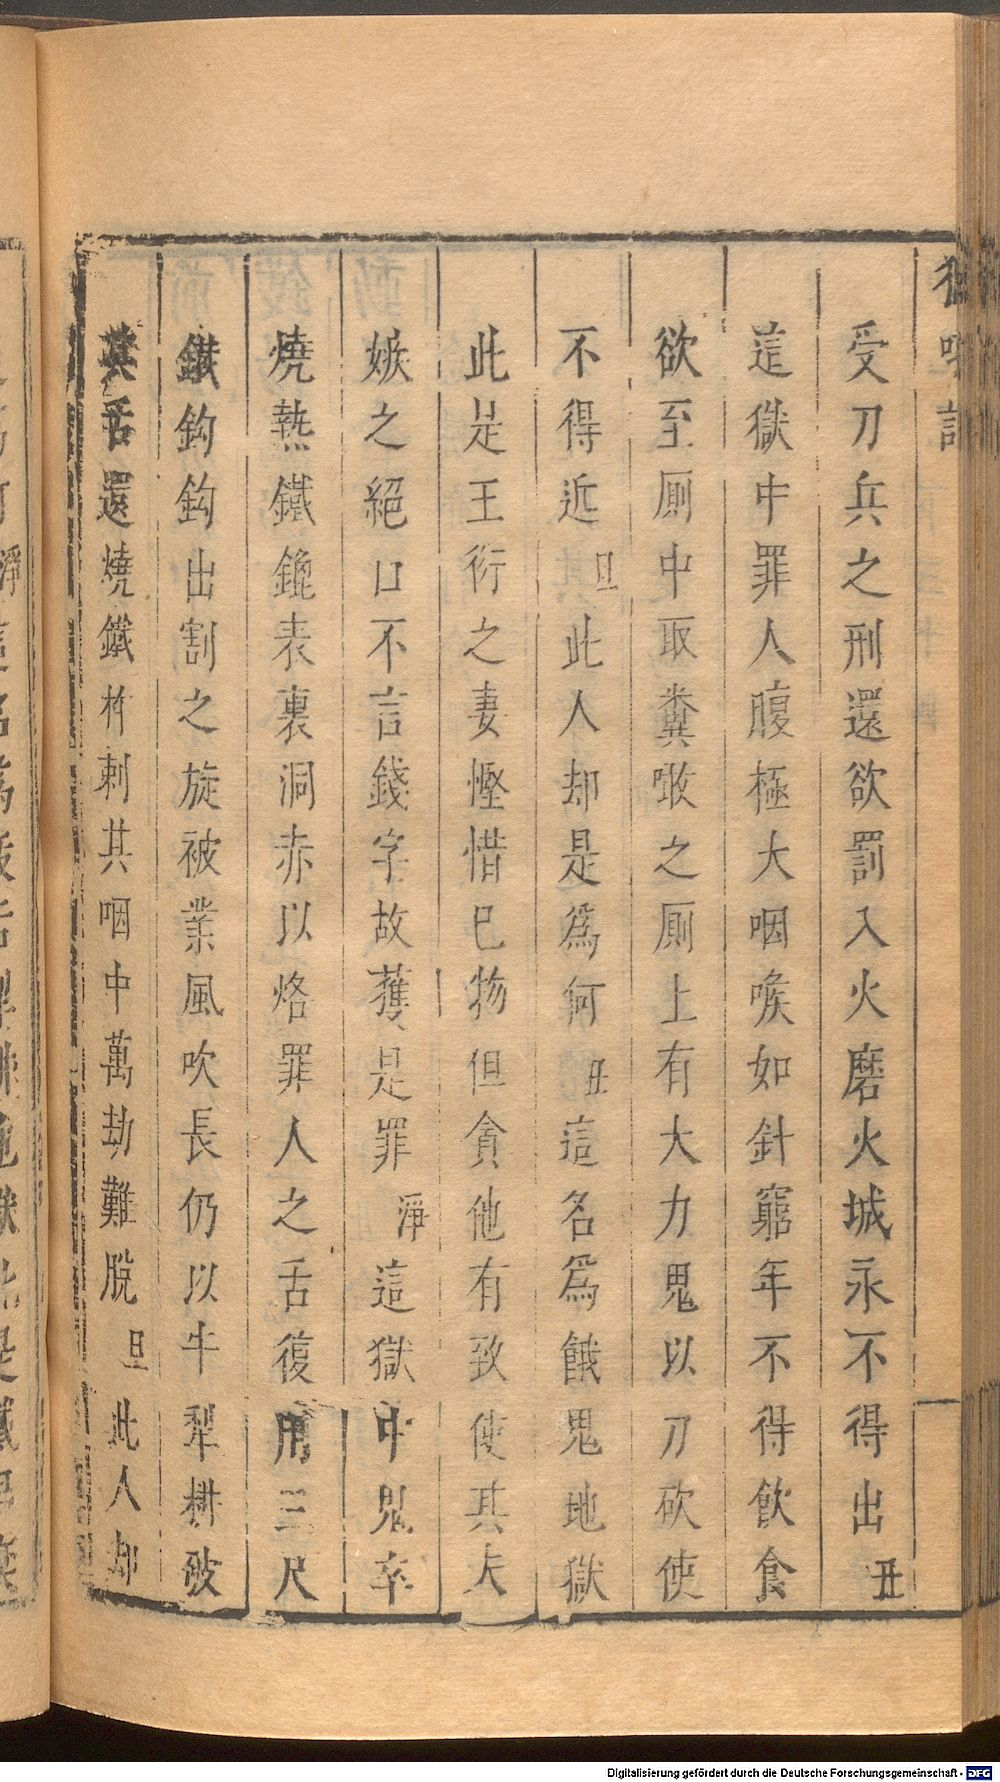 受刀兵之刑還欲罰入火磨火城永不得出丑
這獄中罪人腹極大咽喉如針窮年不得飲食
欲至厠中取糞噉之厠上有大力鬼以刀砍使
不得近旦此人却是爲何丑這名爲餓鬼地獄
此是王衍之妻慳惜己物但貪他有致使其夫
嫉之絕口不言錢字故獲是罪淨這獄中鬼卒
燒熱鐵鎞表裏洞赤以烙罪人之舌復用三尺
鐵鈎鈎出割之旋被業風吹長仍以牛犁耕破
其舌還燒鐵杵刺其咽中萬劫難脫旦此人却
Digitalisierung gefördert durch die Deutsche Forschungsgemeinschaft - DFG